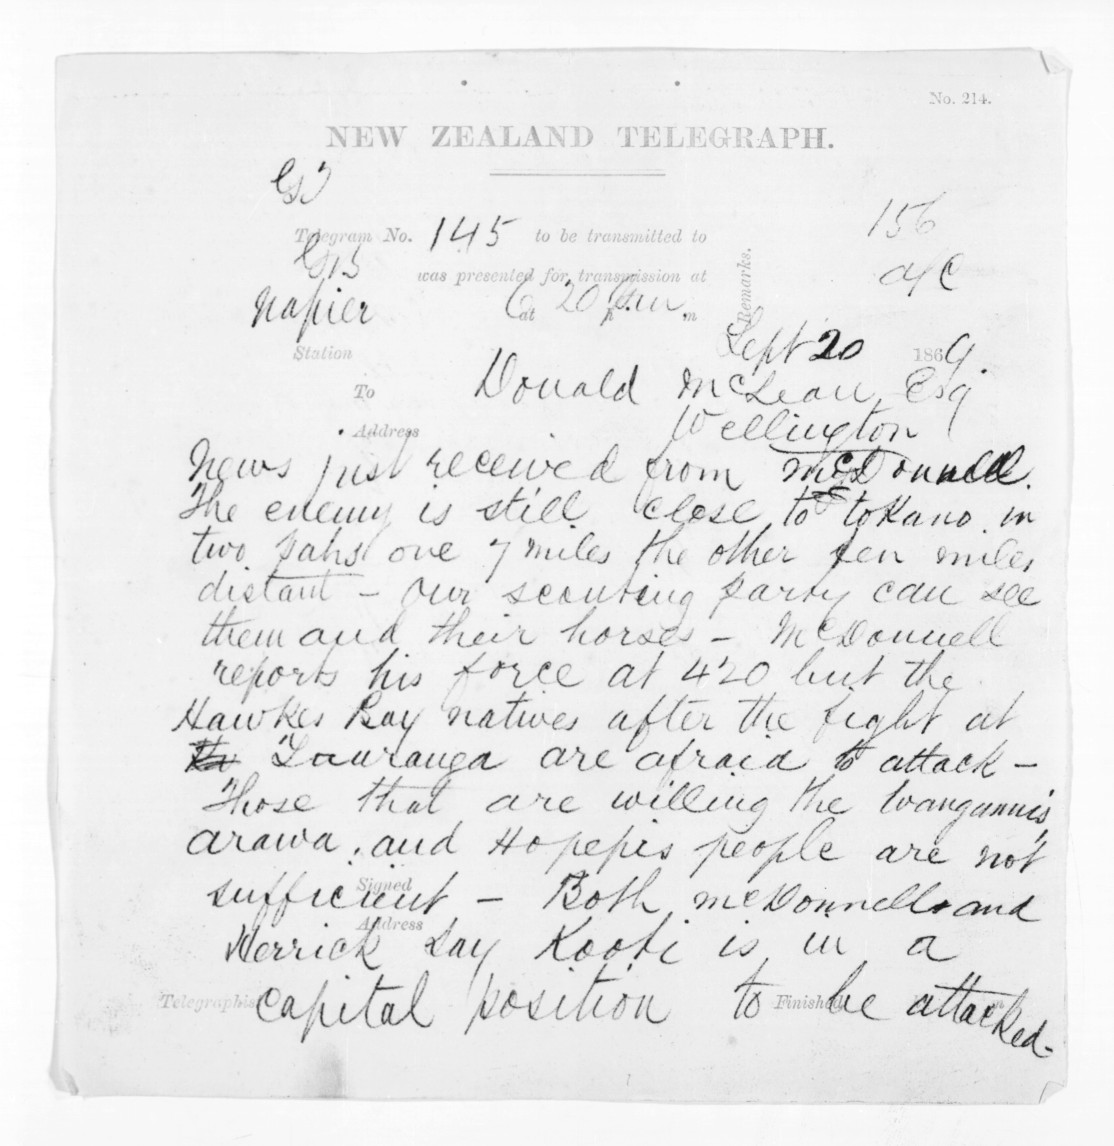 No. 214.
NEW ZEALAND TELEGRAPH.
156
Telegram No. 145 to be transmitted to
was presented for transmission at
Remarks.
Napier 6 at 20 pm m
Station
Sept 20 1869.
To Donald McLean Esq
Address Wellington
News just received from McDonnell.
The enemy is still close to tokano in
two pahs one 7 miles the other ten miles
distant - Our scouting party can see
them and their horses - McDonnell
reports his force at 420 but the
Hawkes Bay natives after the fight at
Tauranga are afraid to attack -
Those that are willing the Wanganuis
arawa, and Hopepis people are not
Signed
sufficient - Both McDonnell and
Address
Herrick say Kooti is in a
Telegraphist Finished
capital position to be attacked -